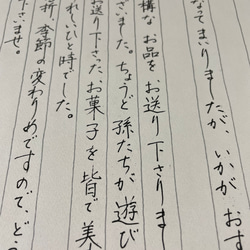 なってまいりましたが、いかがおす
構なお品をお送り下さりま
ざいました。ちょうど孫たちが遊び
お送り下さった、お菓子を皆で美
れしいひと時でした。
折、季節の変わりめですので、どう
下さいませ。